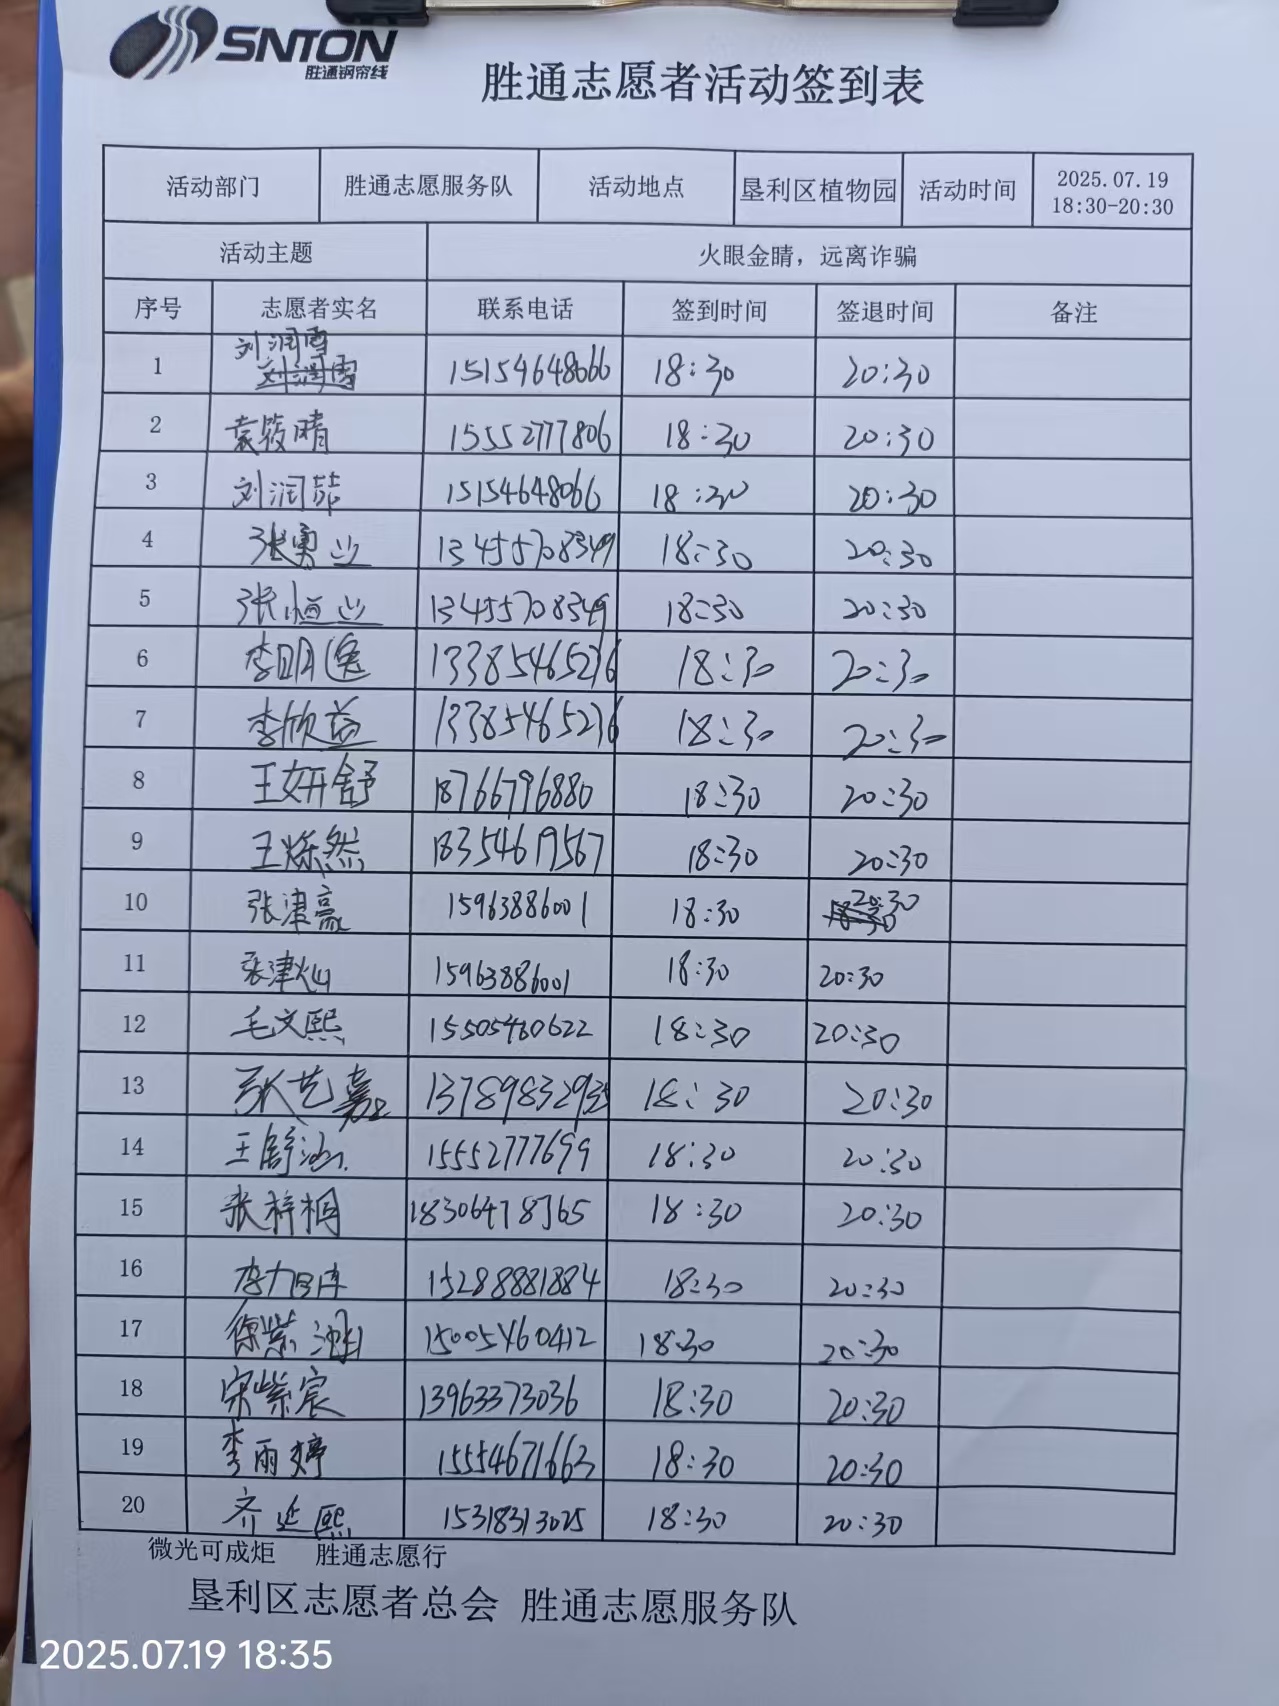 SNTON
胜通钢帘线
胜通志愿者活动签到表
活动部门 胜通志愿服务队 活动地点 垦利区植物园 活动时间 2025.07.19
18:30-20:30
活动主题 火眼金睛，远离诈骗
序号 志愿者实名 联系电话 签到时间 签退时间 备注
刘润雪
1 刘润雪 15154648066 18:30 20:30
2 袁筱晴 15552777806 18:30 20:30
3 刘润茹 15154648066 18:30 20:30
4 张勇 13455708349 18:30 20:30
5 张恒 13455708349 18:30 20:30
6 李明逸 13385465276 18:30 20:30
7 李欣益 13385465276 18:30 20:30
8 王妍舒 18766796880 18:30 20:30
9 王烁然 18354619567 18:30 20:30
10 张津豪 15963886001 18:30 20:30
11 张津灿 15963886001 18:30 20:30
12 毛文熙 15505460622 18:30 20:30
13 张艺嘉 18:30 20:30
14 王舒涵 15552777699 18:30 20:30
15 张梓桐 18306478765 18:30 20:30
16 15288881884 18:30 20:30
17 徐紫 15005460412 18:30 20:30
18 宋紫宸 13963373036 18:30 20:30
19 李雨婷 15554671663 18:30 20:30
20 齐延熙 15318313025 18:30 20:30
微光可成炬 胜通志愿行
垦利区志愿者总会 胜通志愿服务队
2025.07.19 18:35